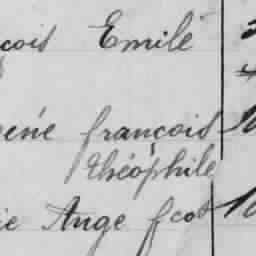 çois Emile
ené françois
théophile
ie Ange fcois